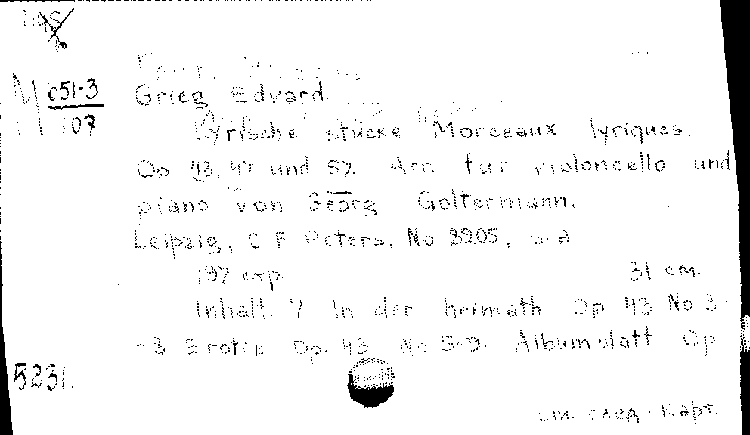 M c51-3
107
Grieg Edvard
Lyrische stücke Morceaux lyriques.
Op 43, 47 und 57. Arr. für violoncello und
piano von Georg Goltermann.
Leipzig, C F Peters, No 3205, s. a
197 exp 31 cm.
Inhalt: 7 In der heimath Op 43 No 3
Erotik Op. 43 No 5-9. Albumblatt Op
5231.
см. след. карт.